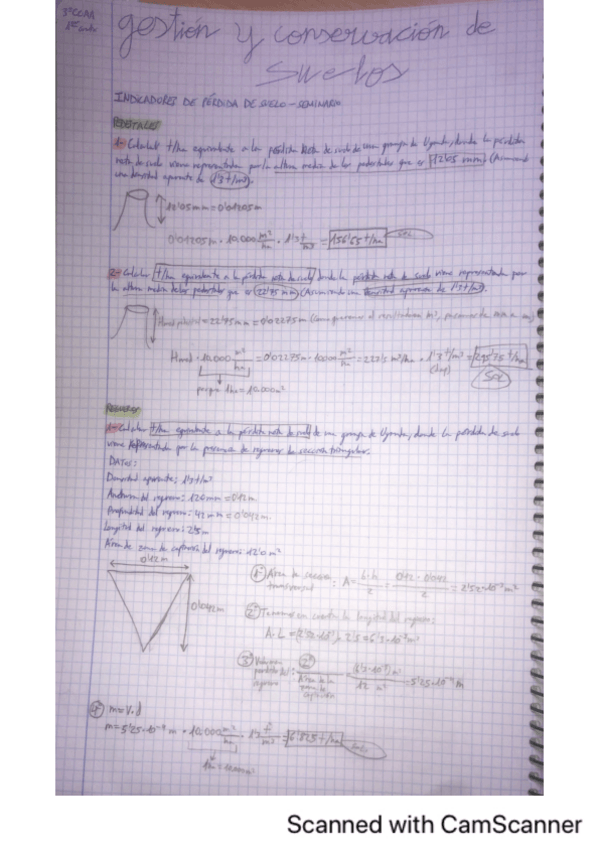 3ºCCAA
1er cuatri
gestión y conservación de
suelos
INDICADORES DE PÉRDIDA DE SUELO - SEMINARIO
PEDESTALES
1- Calcular t/ha equivalente a la pérdida neta de suelo de una granja de Uganda, donde la pérdida
neta de suelo viene representada por la altura media de los pedestales que es 12'05 mm. (Asumiendo
una densidad aparente de 1'3 t/m³).
12'05mm = 0'01205m
0'01205m · 10.000 m²/ha · 1'3 t/m³ = 156'65 t/ha
2- Calcular t/ha equivalente a la pérdida neta de suelo, donde la pérdida neta de suelo viene representada por
la altura media de los pedestales que es 22'75 mm. (Asumiendo una densidad aparente de 1'3 t/m³).
H = 22'75 mm = 0'02275m
10.000 m²/ha = 0'02275m · 10000 m²/ha = 227'5 m³/ha · 1'3 t/m³ = 295'75 t/ha
porque 1ha = 10.000m²
Sol
REGUEROS
1- Calcular t/ha equivalente a la pérdida neta de suelo de una granja de Uganda, donde la pérdida de suelo
viene representada por la presencia de regueros de sección triangular.
DATOS:
Densidad aparente: 1'3 t/m³
Anchura del reguero: 120 mm = 0'12 m
Profundidad del reguero: 42 mm = 0'042 m.
Longitud del reguero: 2'5m
Área de zona de captación del reguero: 12'0 m²
0'12 m
0'042m
1º Área de sección transversal: A = b·h/2 = 0'12 · 0'042/2 = 2'52·10⁻³ m²
2º Tenemos en cuenta la longitud del reguero:
A·L = (2'52·10⁻³) · 2'5 = 6'3·10⁻³ m³
3º Volumen perdido del reguero: 2º/Área de la zona de captación = (6'3·10⁻³) m³/12 m² = 5'25·10⁻⁴ m
4º m = V·d
m = 5'25·10⁻⁴ m · 10.000 m²/ha · 1'3 t/m³ = 6'825 t/ha
1ha = 10.000m²
Scanned with CamScanner